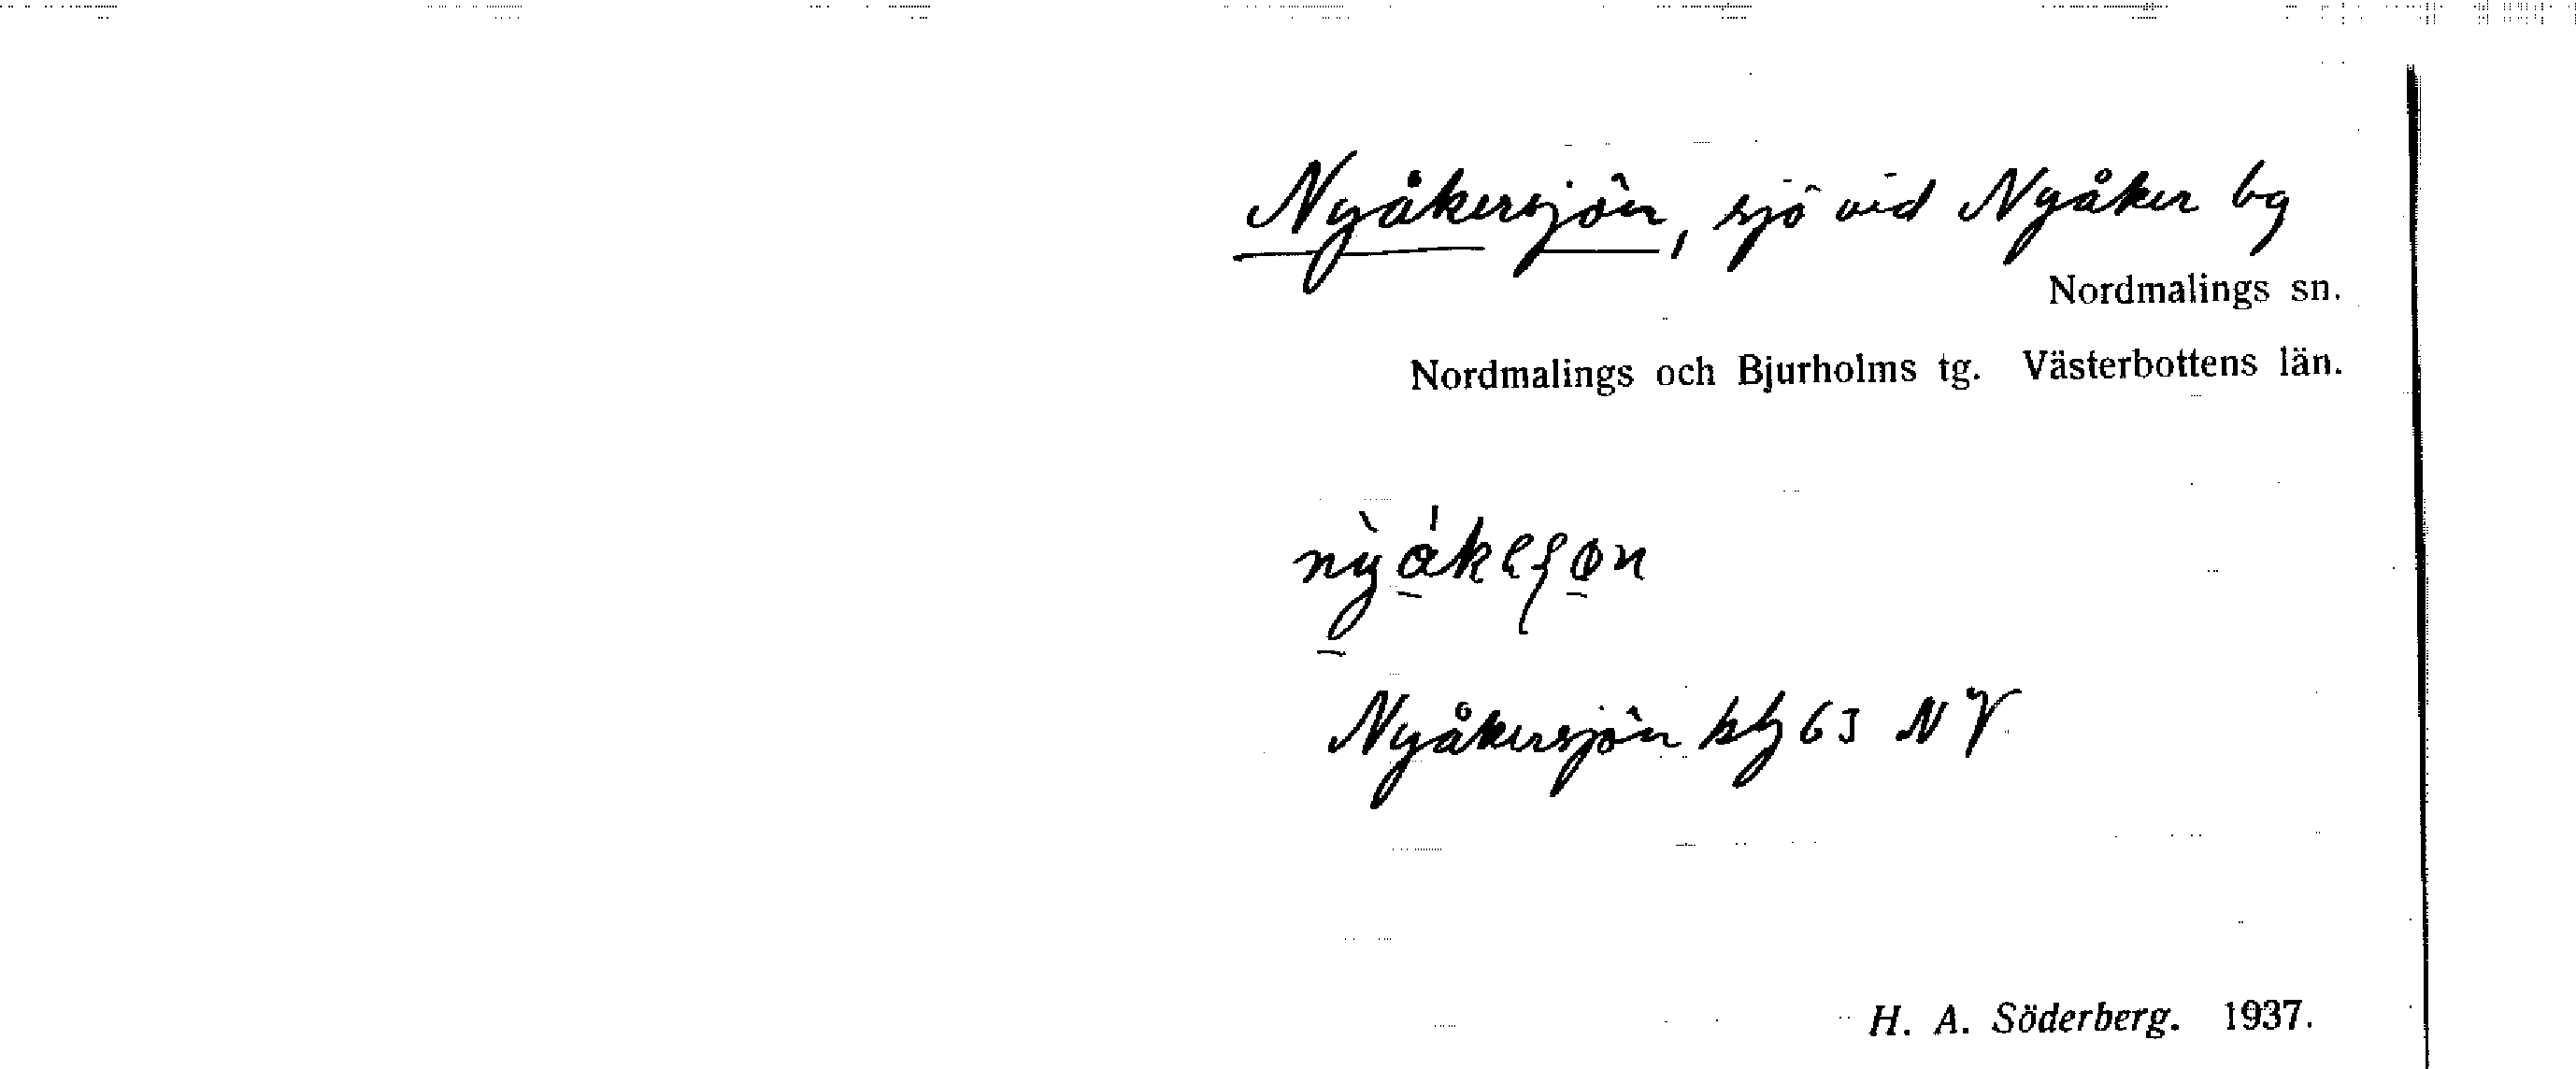 Nyåkersjön, sjö vid Nyåker bg
Nordmalings sn.
Nordmalings och Bjurholms tg. Västerbottens län.
Nyåkersjön 63 NV
H. A. Söderberg. 1937.